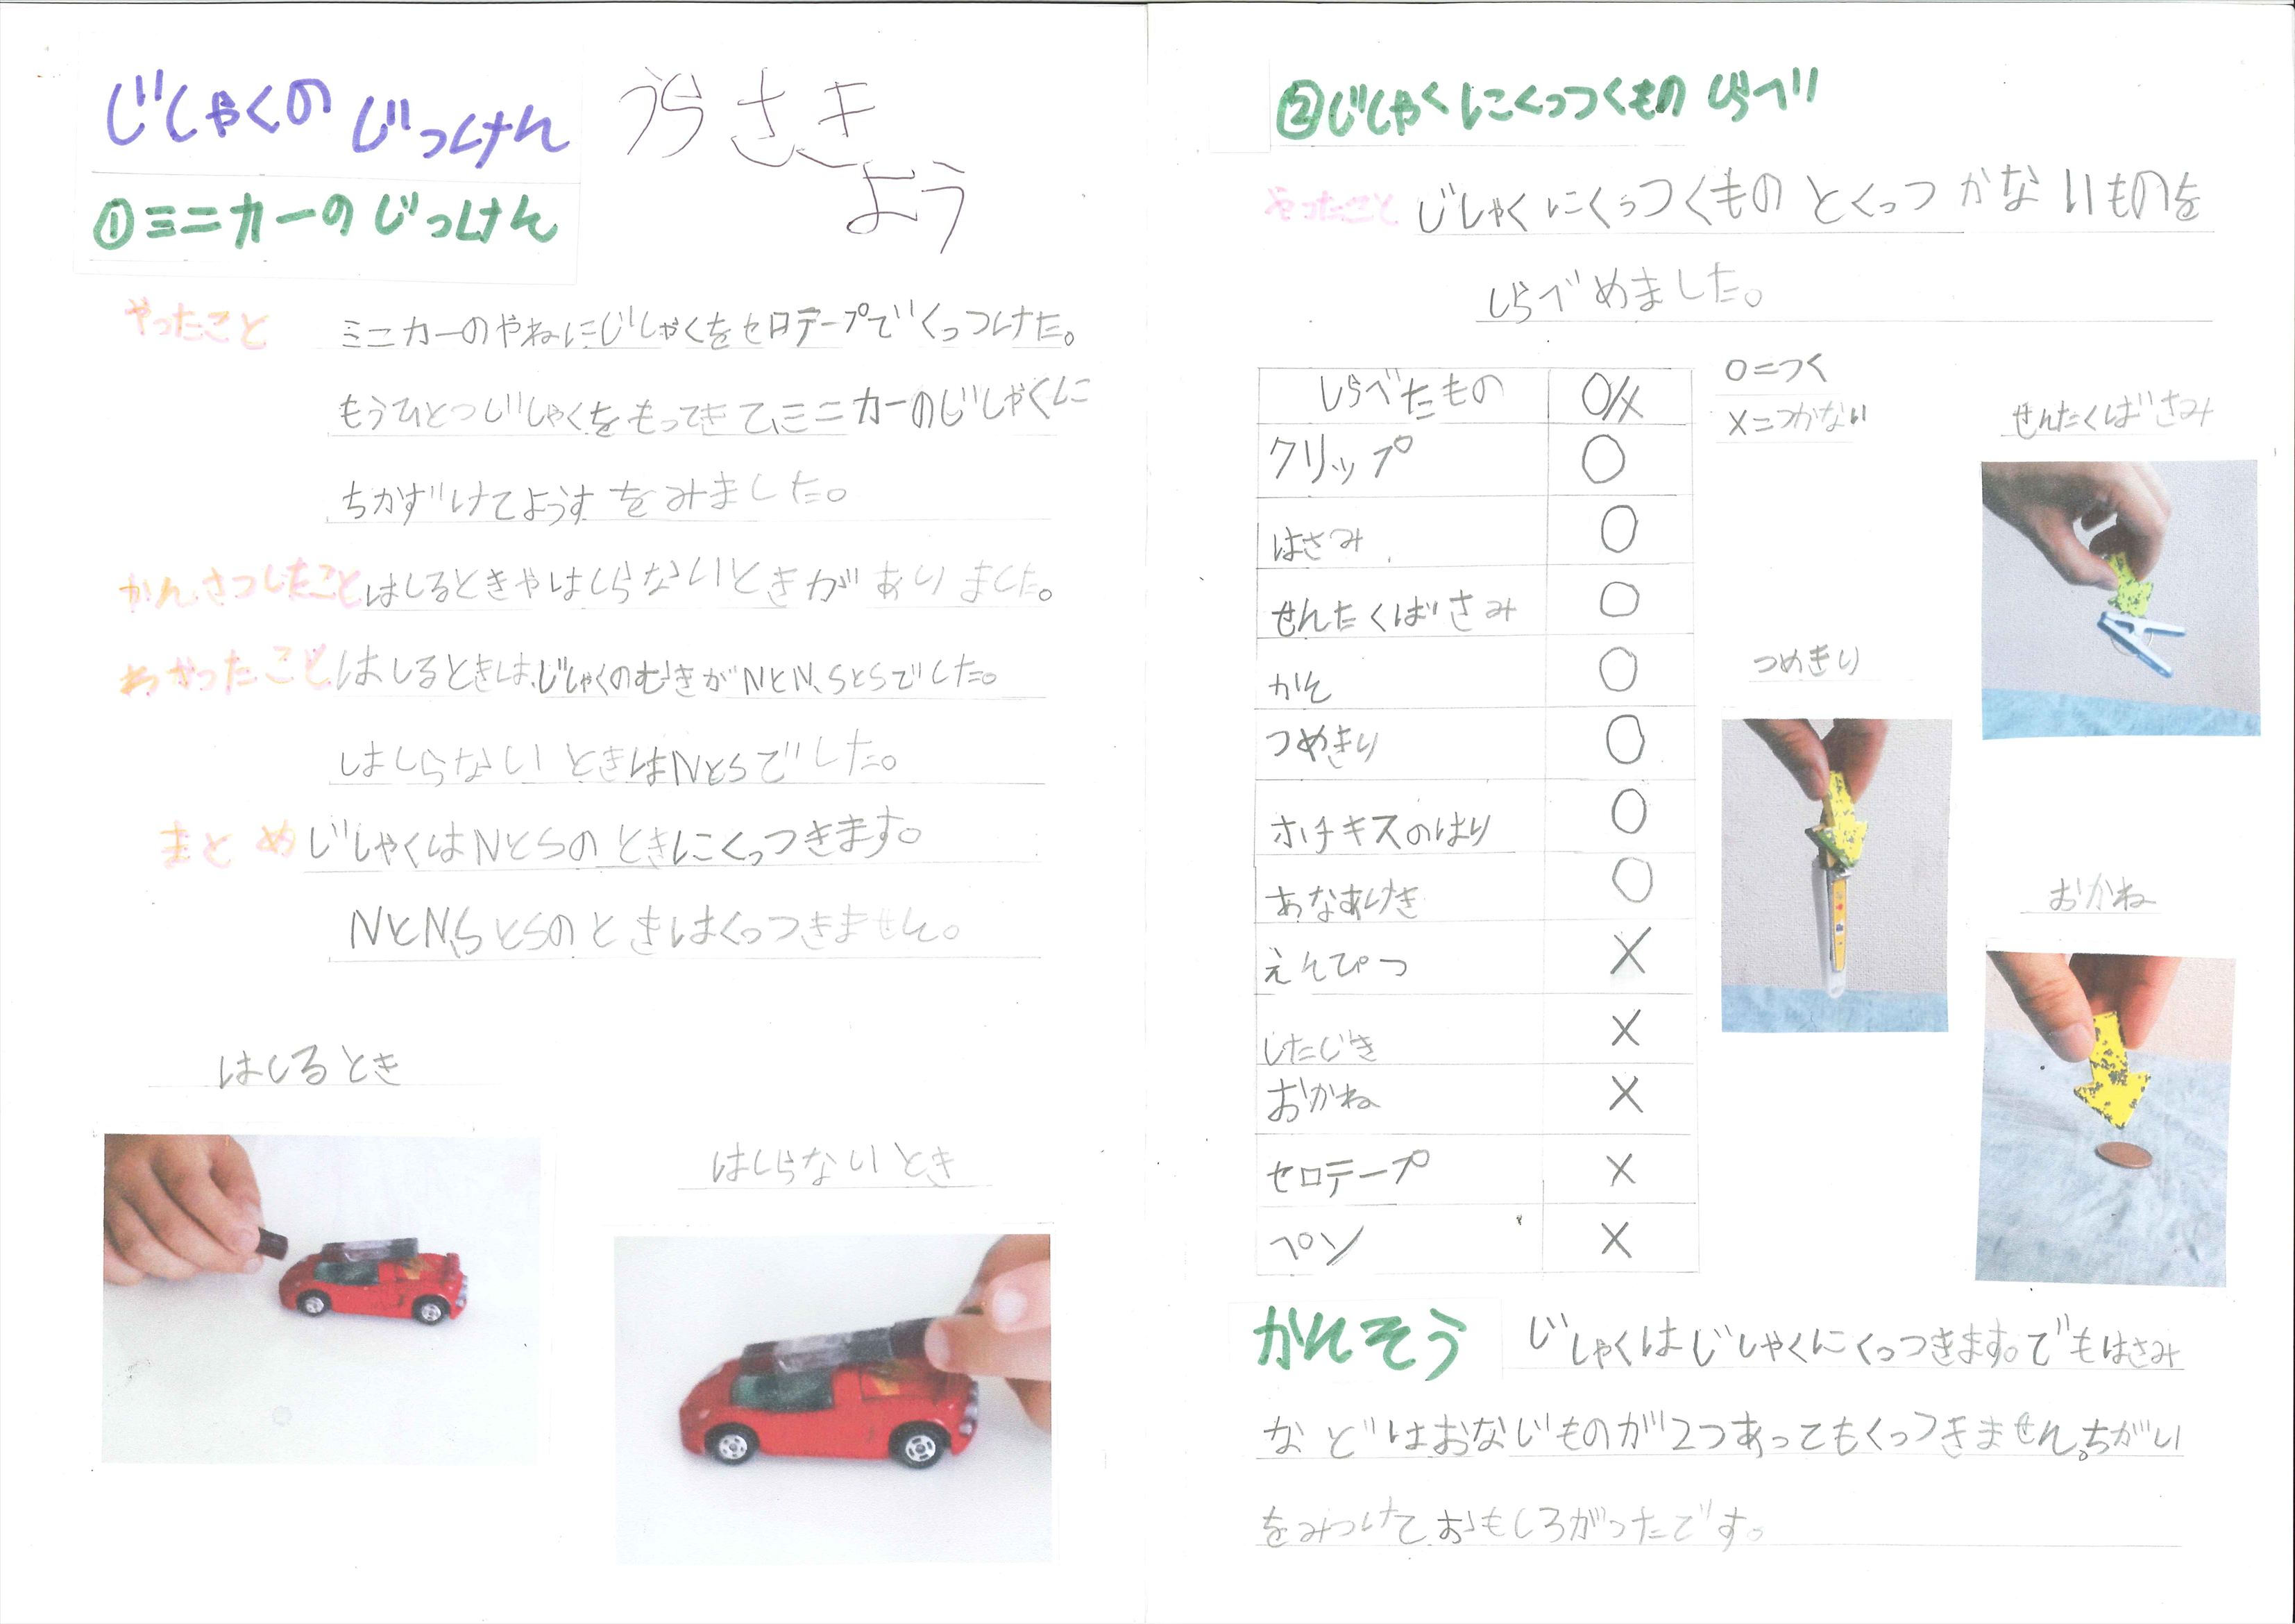 じしゃくの じっけん
うらさき
よう
①ミニカーの じっけん
やったこと
ミニカーのやねにじしゃくをセロテープでくっつけた。
もうひとつじしゃくをもってきて、ミニカーのじしゃくに
ちかずけてようすをみました。
かんさつしたこと はしるときやはしらないときがありました。
わかったこと はしるときは、じしゃくのむきがNとN、SとSでした。
はしらないときはNとSでした。
まとめ じしゃくはNとSのときにくっつきます。
NとN、SとSのときはくっつきません。
はしるとき
はしらないとき
②じしゃくにくっつくものしらべ
やったこと じしゃくにくっつくものとくっつかないものを
しらべめました。
しらべたもの ○/×
クリップ ○
はさみ ○
せんたくばさみ ○
かん ○
つめきり ○
ホチキスのはり ○
あなあけき ○
えんぴつ ×
したじき ×
おかね ×
セロテープ ×
ペン ×
○=つく
×=つかない
せんたくばさみ
つめきり
おかね
かんそう じしゃくはじしゃくにくっつきます。でもはさみ
などはおなじものが2つあってもくっつきません。ちがい
をみつけておもしろがったです。